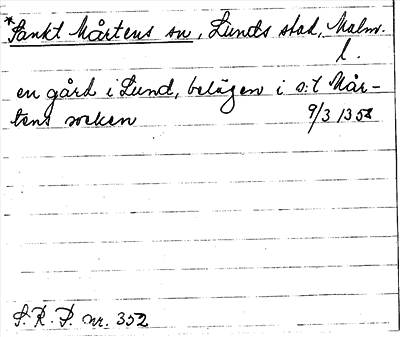 *Sankt Mårtens sn, Lunds stad, Malm.
l.
en gård i Lund, belägen i s:t Mår-
tens socken 9/3 1358
S.R.P. nr. 352